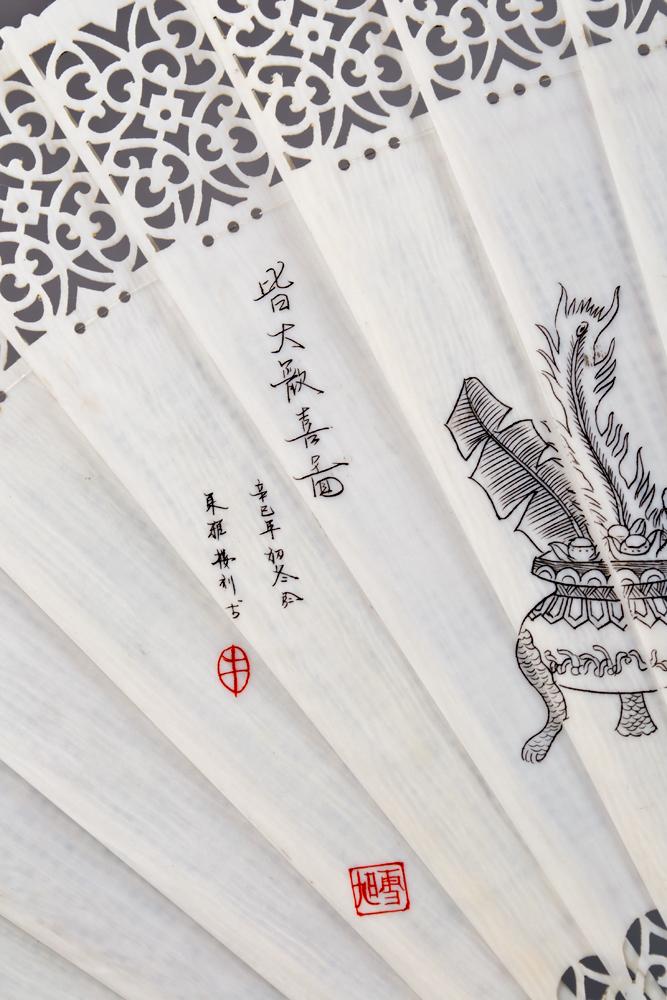 皆大歡喜圖
辛巳年初冬於
東雅樓刻古
雪旭